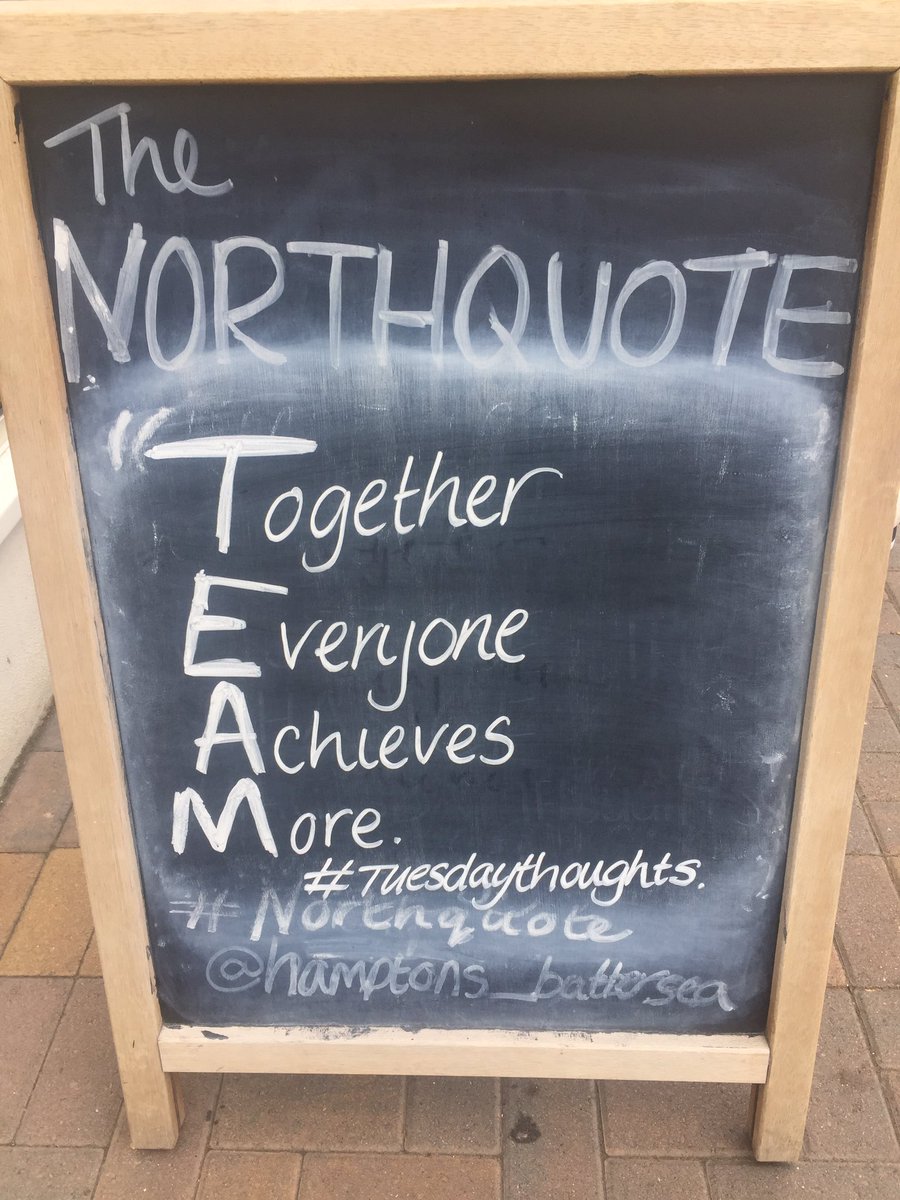 The
NORTHQUOTE
"Together
Everyone
Achieves
More.
#Tuesdaythoughts.
#Northquote
@hamptons_battersea